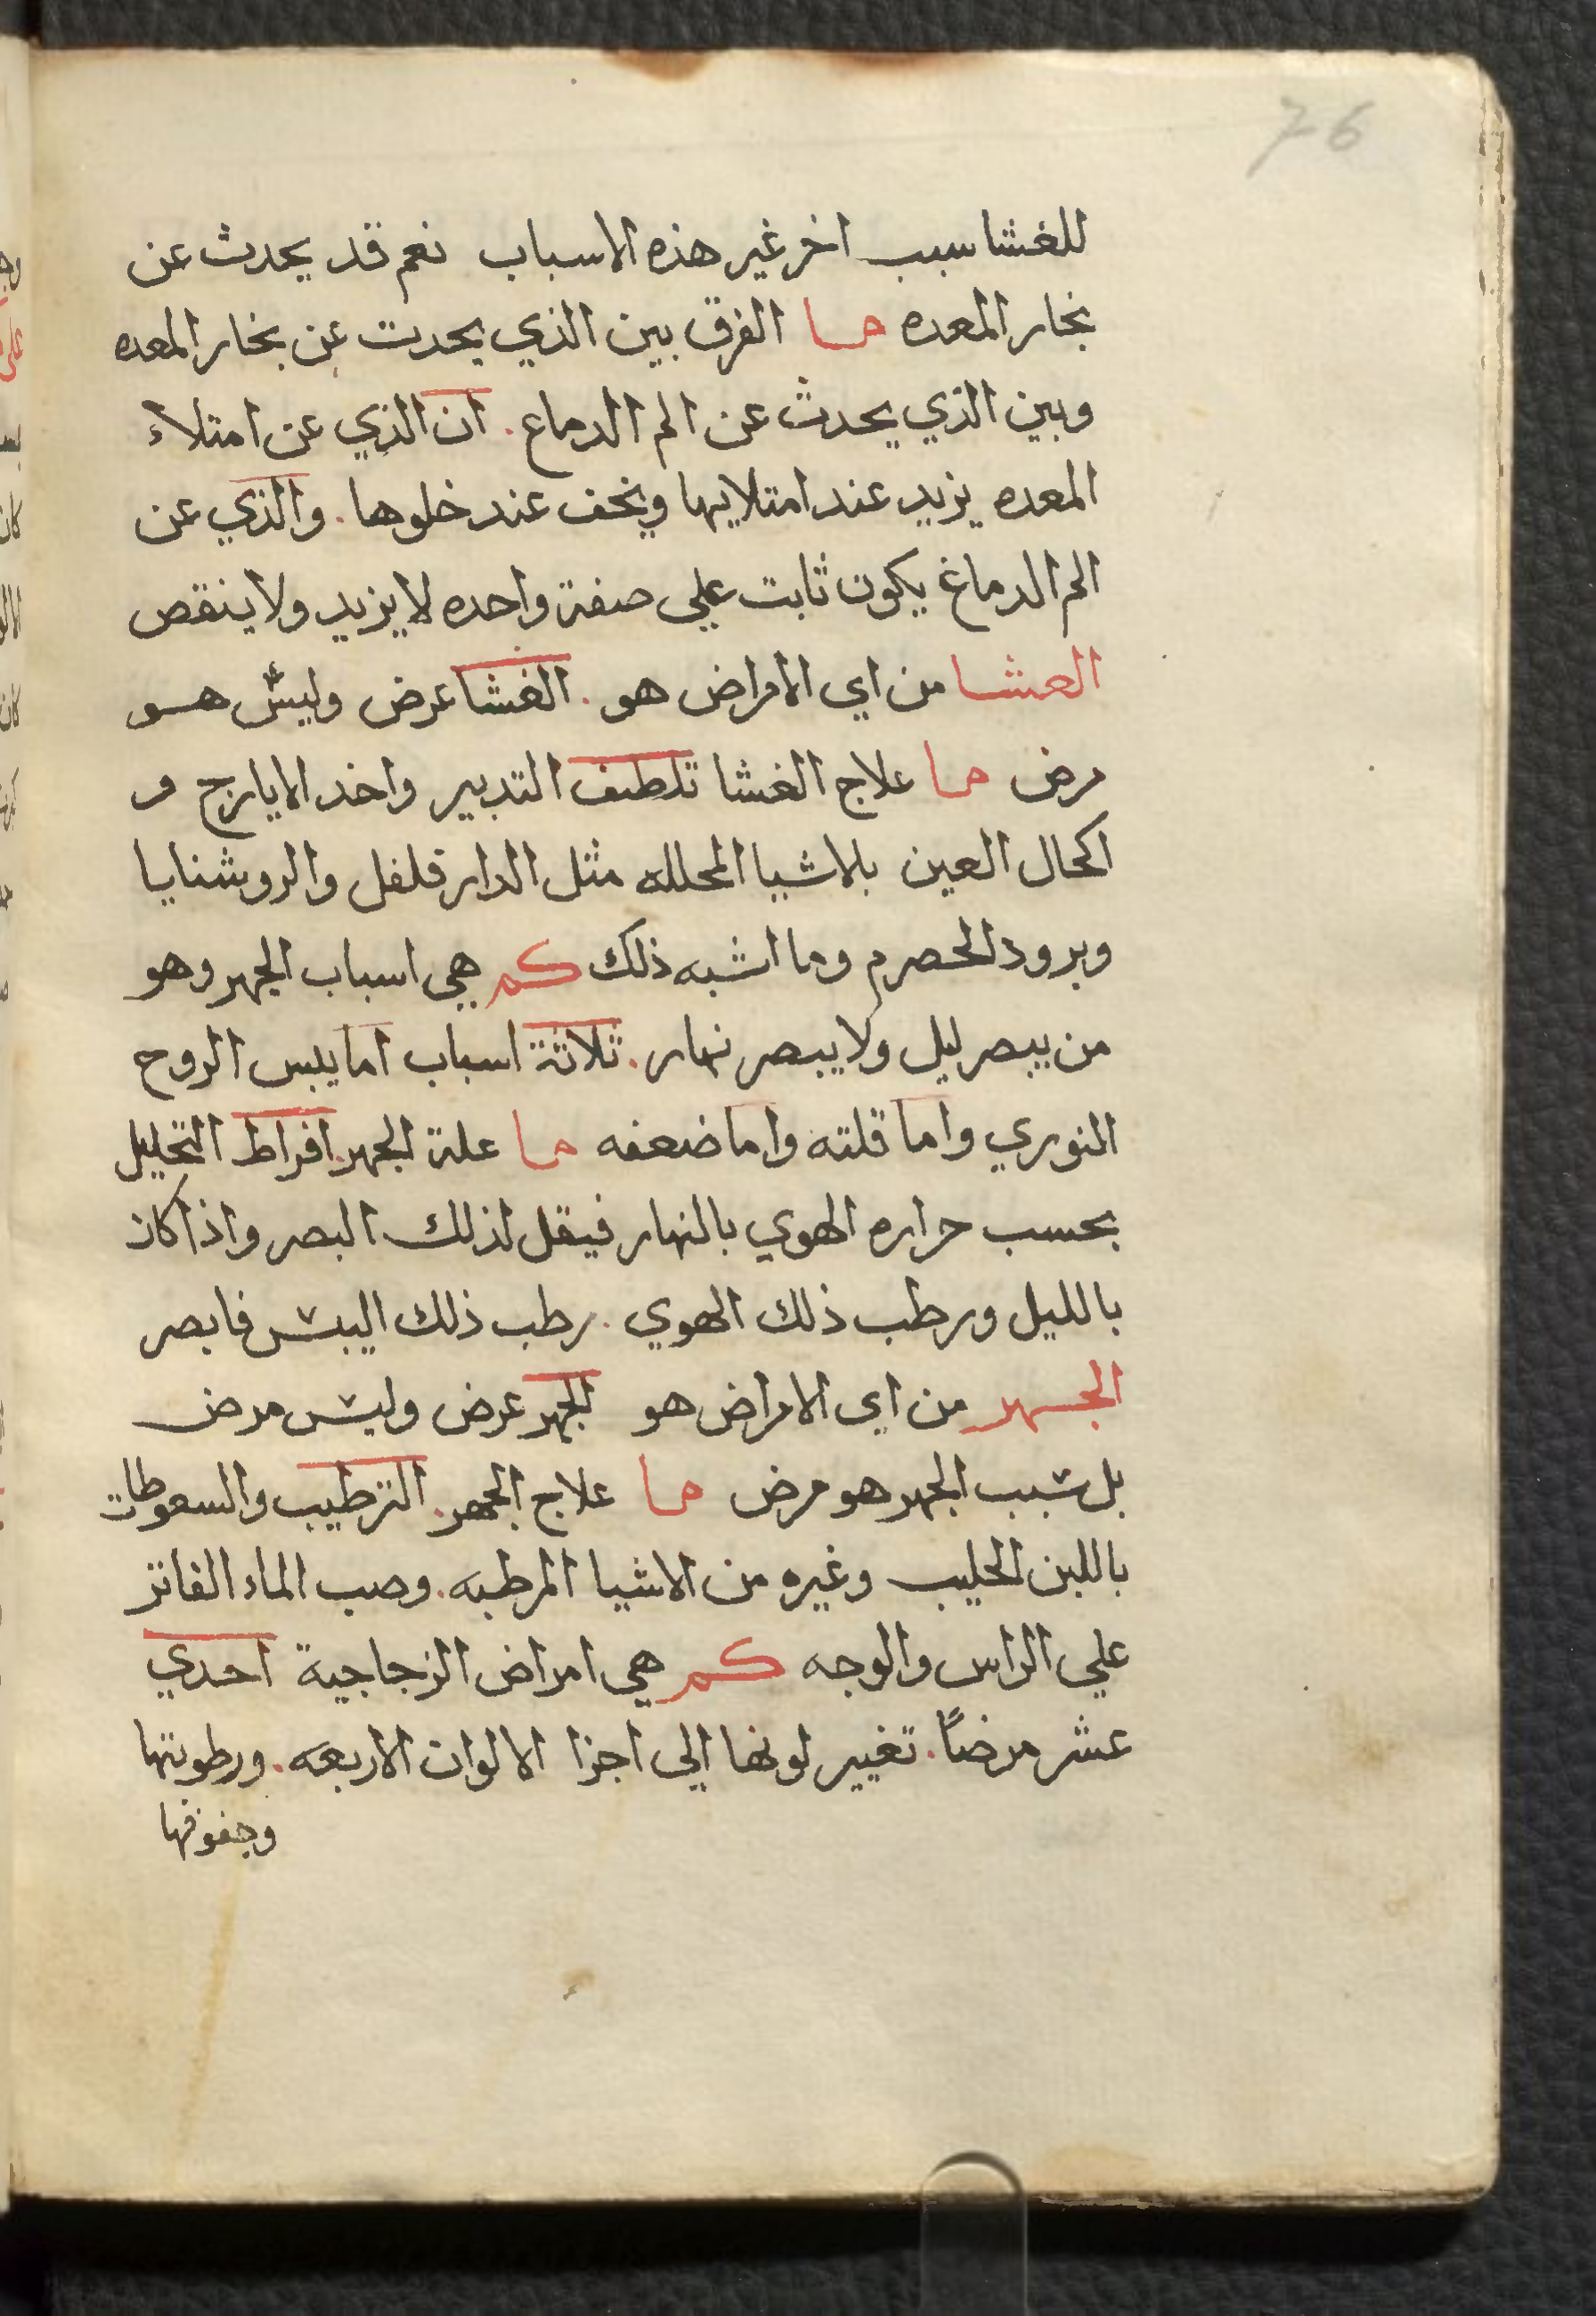 76
للغشا سبب اخر غير هذه الاسباب نعم قد يحدث عن
بخار المعده ما الفرق بين الذي يحدث عن بخار المعده
وبين الذي يحدث عن الم الدماع. ان الذي عن امتلاء
المعده يزيد عند امتلايها ويخف عند خلوها. والذي عن
الم الدماغ يكون ثابت علي صفة واحده لا يزيد ولا ينقص
العشا من اي الامراض هو. الغشا عرض وليس هو
مرض ما علاج الغشا تلطف التدبير واخد الايارج و
اكحال العين بلاشيا المحلله مثل الدار فلفل والروشنايا
وبرود الحصرم وما اشبه ذلك كم هي اسباب الجهر وهو
من يبصر ليل ولا يبصر نهار. ثلاثة اسباب اما يبس الروح
النوري واما قلته واما ضعفه ما علة الجهر. افراط التحليل
بحسب حراره الهوي بالنهار فيقل لذلك البصر واذا كان
بالليل ورطب ذلك الهوي. رطب ذلك اليبس فابصر
الجهر من اي الامراض هو الجهر عرض وليس مرض
بل سبب الجهر هو مرض ما علاج الجهر. الترطيب والسعوطات
باللبن الحليب وغيره من الاشيا المرطبه. وصب الماء الفاتر
علي الراس والوجه كم هي امراض الزجاجية احدي
عشر مرضًا. تغيير لونها الي اجزا الالوان الاربعه. ورطوبتها
وجفوفها